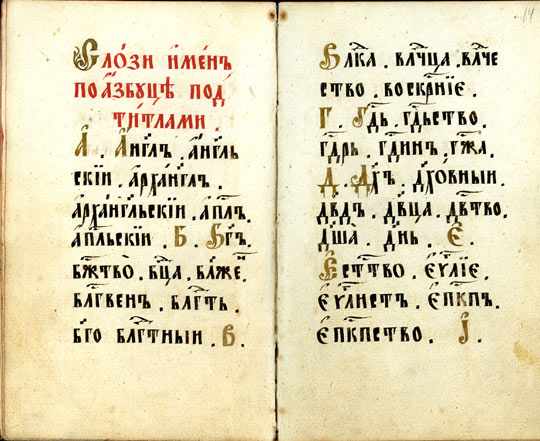 Сло́зи и҆ме́нъ
по а҆́збуцѣ под̾
ти́тлами .
А . А҆́г҃глъ . а҆́г҃гль
скїй . а҆рха́г҃глъ .
а҆рха́г҃гльскїй . а҆п҃лъ .
а҆п҃льскїй . Б . Бг҃ъ .
бж҃тво̀ . бц҃а . бл҃же҃
бл҃гвенъ . бл҃гть .
бг҃о бл҃гтныи . В .
Вл҃ка . вл҃чца . вл҃че
ство . воскрн҃їе .
Г . Гд҃ь . гд҃ьство .
гд҃рь . гд҃инъ . гж҃а .
Д . Дх҃ъ . дх҃о́вныи .
дв҃дъ . дв҃ца . дв҃тво .
дш҃а̀ . дн҃ь . Е .
Ест҃тво . є҆у҃лїе .
є҆у҃листъ . є҆пк҃пъ .
є҆пк҃пство . Ѕ .
14